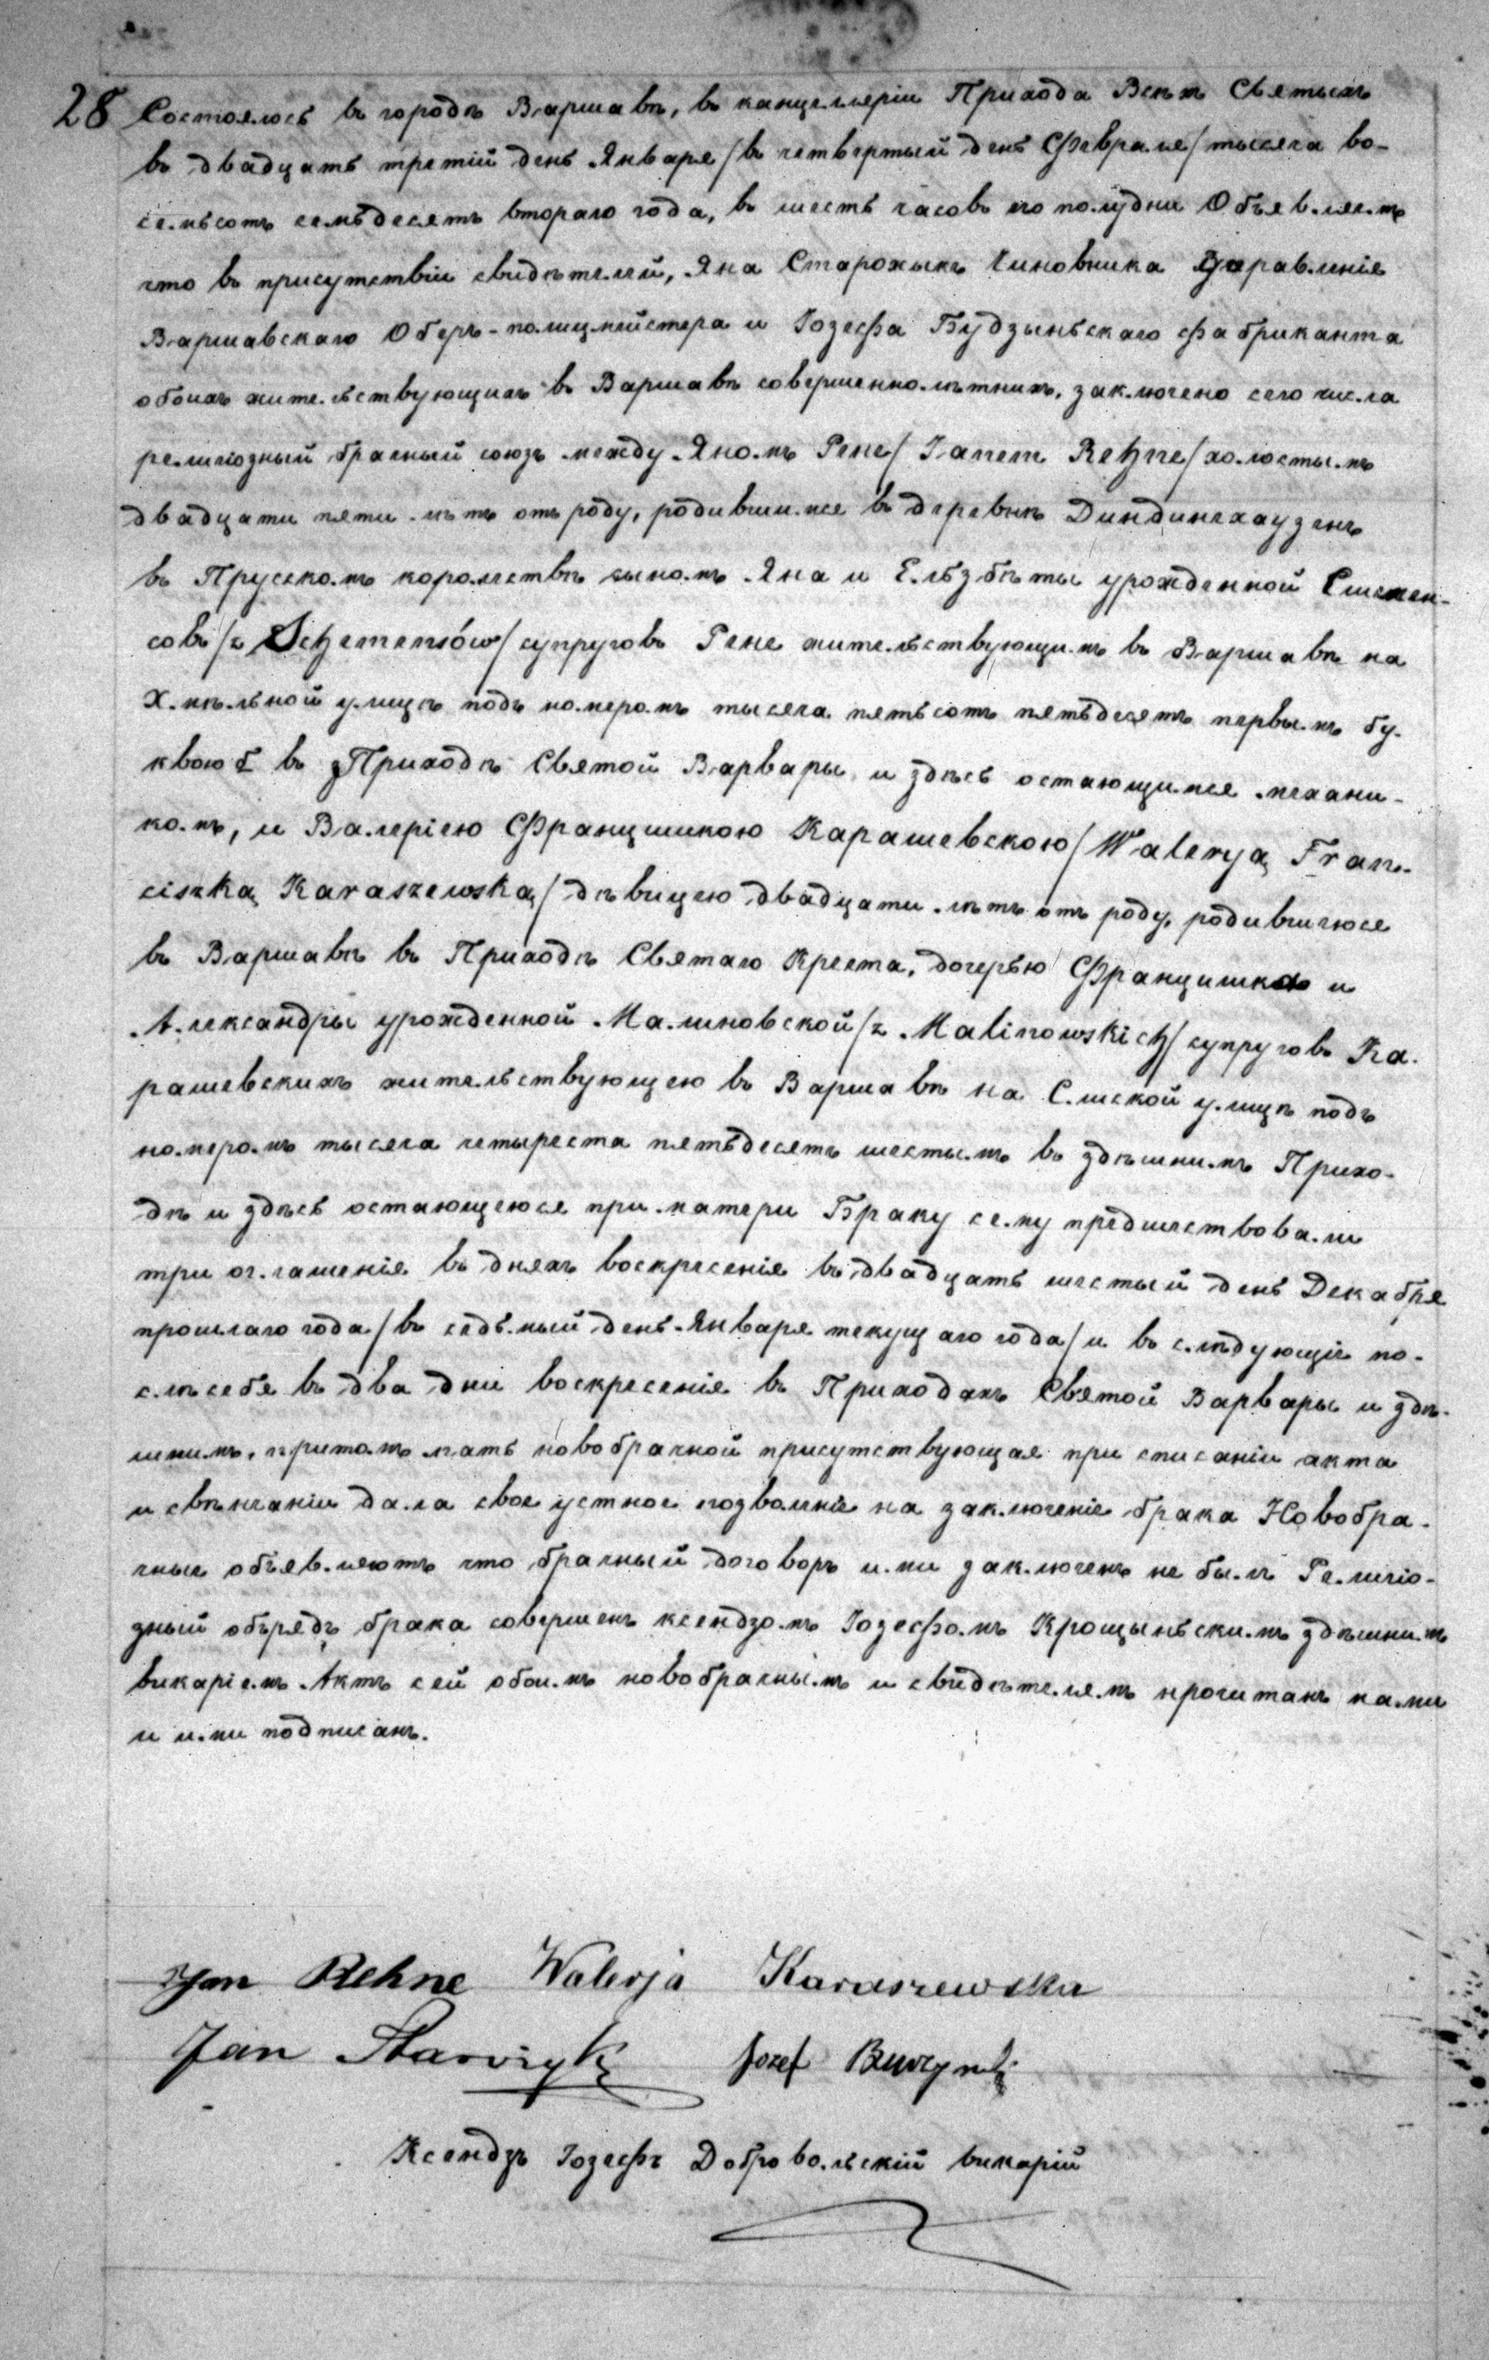 28 Состоялось въ городѣ Варшавѣ, въ канцелляріи Прихода Всѣхъ Святыхъ
въ двадцать третій день Января/въ четвертый день Февраля/тысяча во-
семьсотъ семьдесятъ втораго года, въ шесть часовъ по полудни Объявляемъ
что въ присутствіи свидѣтелей, Яна Чиновника Управленія
Варшавскаго Оберъ-полицмейстера и Іозефа Будзыньскаго фабриканта
обоихъ жительствующихъ въ Варшавѣ совершеннолѣтнихъ, заключено сего числа
религіозный брачный союзъ между Яномъ Рене/Janem Rehne/холостымъ
двадцати пяти лѣтъ отъ роду, родившимся въ деревнѣ Диндинехаузенъ
въ Прускомъ королествѣ сыномъ Яна и Ельзбѣты урожденной Сшемен-
совъ/z Schemensów/супруговъ Рене жительствующимъ въ Варшавѣ на
Хмѣльной улицѣ подъ номеромъ тысяча пятьсотъ пятьдесятъ первымъ бу-
квою в Приходѣ Святой Варвары и здѣсь остающимся механи-
комъ, и Валеріею Францишкою Карашевскою/Waleryą Fran-
ciszką Karaszewską/дѣвицею двадцати лѣтъ отъ роду, родившеюся
въ Варшавѣ въ Приходѣ Святаго Креста, дочерью Францишка и
Александры урожденной Малиновской/z Malinowskich/супруговъ Ка-
рашевскихъ жительствующею въ Варшавѣ на Слиской улицѣ подъ
номеромъ тысяча четыреста пятьдесятъ шестымъ въ здѣшнимъ Прихо-
дѣ и здѣсь остающеюся при матери Браку сему предшествовали
три оглашенія въ дняхъ воскресенія въ двадцать шестый день Декабря
прошлаго года/въ седьмый день Января текущаго года/и въ слѣдующіе по-
слѣ себя въ два дни воскресенія въ Приходахъ Святой Варвары и здѣ-
шнимъ, притомъ мать новобрачной присутствующая при списаніи акта
и свѣнчаніи дала свое устное позволеніе на заключеніе брака Новобра-
чные объявляютъ что брачный договоръ ими заключенъ не былъ Религіо-
зный обърядъ брака совершенъ ксендзомъ Іозефомъ Крощыньскимъ здѣшнимъ
викаріемъ. Актъ сей обоимъ новобрачнымъ и свидѣтелямъ прочитанъ нами
и ими подписанъ.
Jan Rehne Walerja Karaszewska
Jan Jozef
Ксендзъ Іозефъ Добровольскій викарій